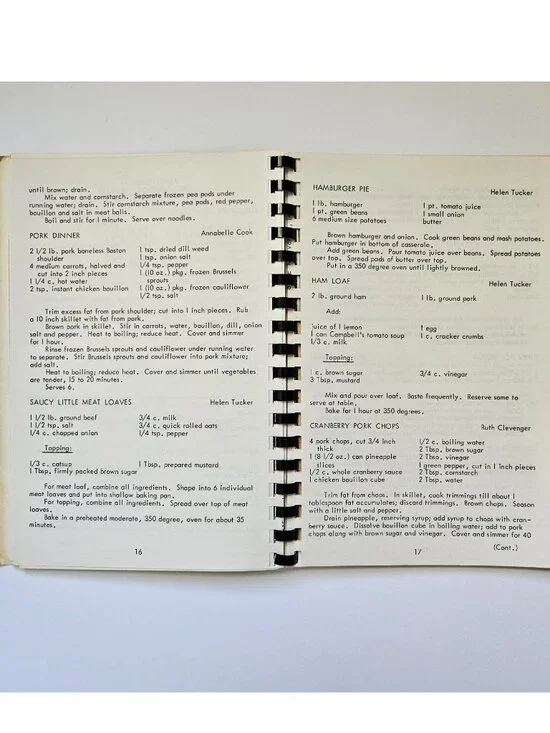 until brown; drain.
Mix water and cornstarch. Separate frozen pea pods under
running water; drain. Stir cornstarch mixture, pea pods, red pepper,
bouillon and salt in meat balls.
Boil and stir for 1 minute. Serve over noodles.
PORK DINNER Annabelle Cook
2 1/2 lb. pork boneless Boston 1 tsp. dried dill weed
shoulder 1 tsp. onion salt
4 medium carrots, halved and 1/4 tsp. pepper
cut into 2 inch pieces 1 (10 oz.) pkg. frozen Brussels
1 1/4 c. hot water sprouts
2 tsp. instant chicken bouillon 1 (10 oz.) pkg. frozen cauliflower
1/2 tsp. salt
Trim excess fat from pork shoulder; cut into 1 inch pieces. Rub
a 10 inch skillet with fat from pork.
Brown pork in skillet. Stir in carrots, water, bouillon, dill, onion
salt and pepper. Heat to boiling; reduce heat. Cover and simmer
for 1 hour.
Rinse frozen Brussels sprouts and cauliflower under running water
to separate. Stir Brussels sprouts and cauliflower into pork mixture;
add salt.
Heat to boiling; reduce heat. Cover and simmer until vegetables
are tender, 15 to 20 minutes.
Serves 6.
SAUCY LITTLE MEAT LOAVES Helen Tucker
1 1/2 lb. ground beef 3/4 c. milk
1 1/2 tsp. salt 3/4 c. quick rolled oats
1/4 c. chopped onion 1/4 tsp. pepper
Topping:
1/3 c. catsup 1 Tbsp. prepared mustard
1 Tbsp. firmly packed brown sugar
For meat loaf, combine all ingredients. Shape into 6 individual
meat loaves and put into shallow baking pan.
For topping, combine all ingredients. Spread over top of meat
loaves.
Bake in a preheated moderate, 350 degree, oven for about 35
minutes.
16
HAMBURGER PIE Helen Tucker
1 lb. hamburger 1 pt. tomato juice
1 pt. green beans 1 small onion
6 medium size potatoes butter
Brown hamburger and onion. Cook green beans and mash potatoes.
Put hamburger in bottom of casserole.
Add green beans. Pour tomato juice over beans. Spread potatoes
over top. Spread pads of butter over top.
Put in a 350 degree oven until lightly browned.
HAM LOAF Helen Tucker
2 lb. ground ham 1 lb. ground pork
Add:
juice of 1 lemon 1 egg
1 can Campbell's tomato soup 1 c. cracker crumbs
1/3 c. milk
Topping:
1 c. brown sugar 3/4 c. vinegar
3 Tbsp. mustard
Mix and pour over loaf. Baste frequently. Reserve some to
serve at table.
Bake for 1 hour at 350 degrees.
CRANBERRY PORK CHOPS Ruth Clevenger
4 pork chops, cut 3/4 inch 1/2 c. boiling water
thick 2 Tbsp. brown sugar
1 (8 1/2 oz.) can pineapple 2 Tbsp. vinegar
slices 1 green pepper, cut in 1 inch pieces
1/2 c. whole cranberry sauce 2 Tbsp. cornstarch
1 chicken bouillon cube 2 Tbsp. water
Trim fat from chops. In skillet, cook trimmings till about 1
tablespoon fat accumulates; discard trimmings. Brown chops. Season
with a little salt and pepper.
Drain pineapple, reserving syrup; add syrup to chops with cran-
berry sauce. Dissolve bouillon cube in boiling water; add to pork
chops along with brown sugar and vinegar. Cover and simmer for 40
17 (Cont.)